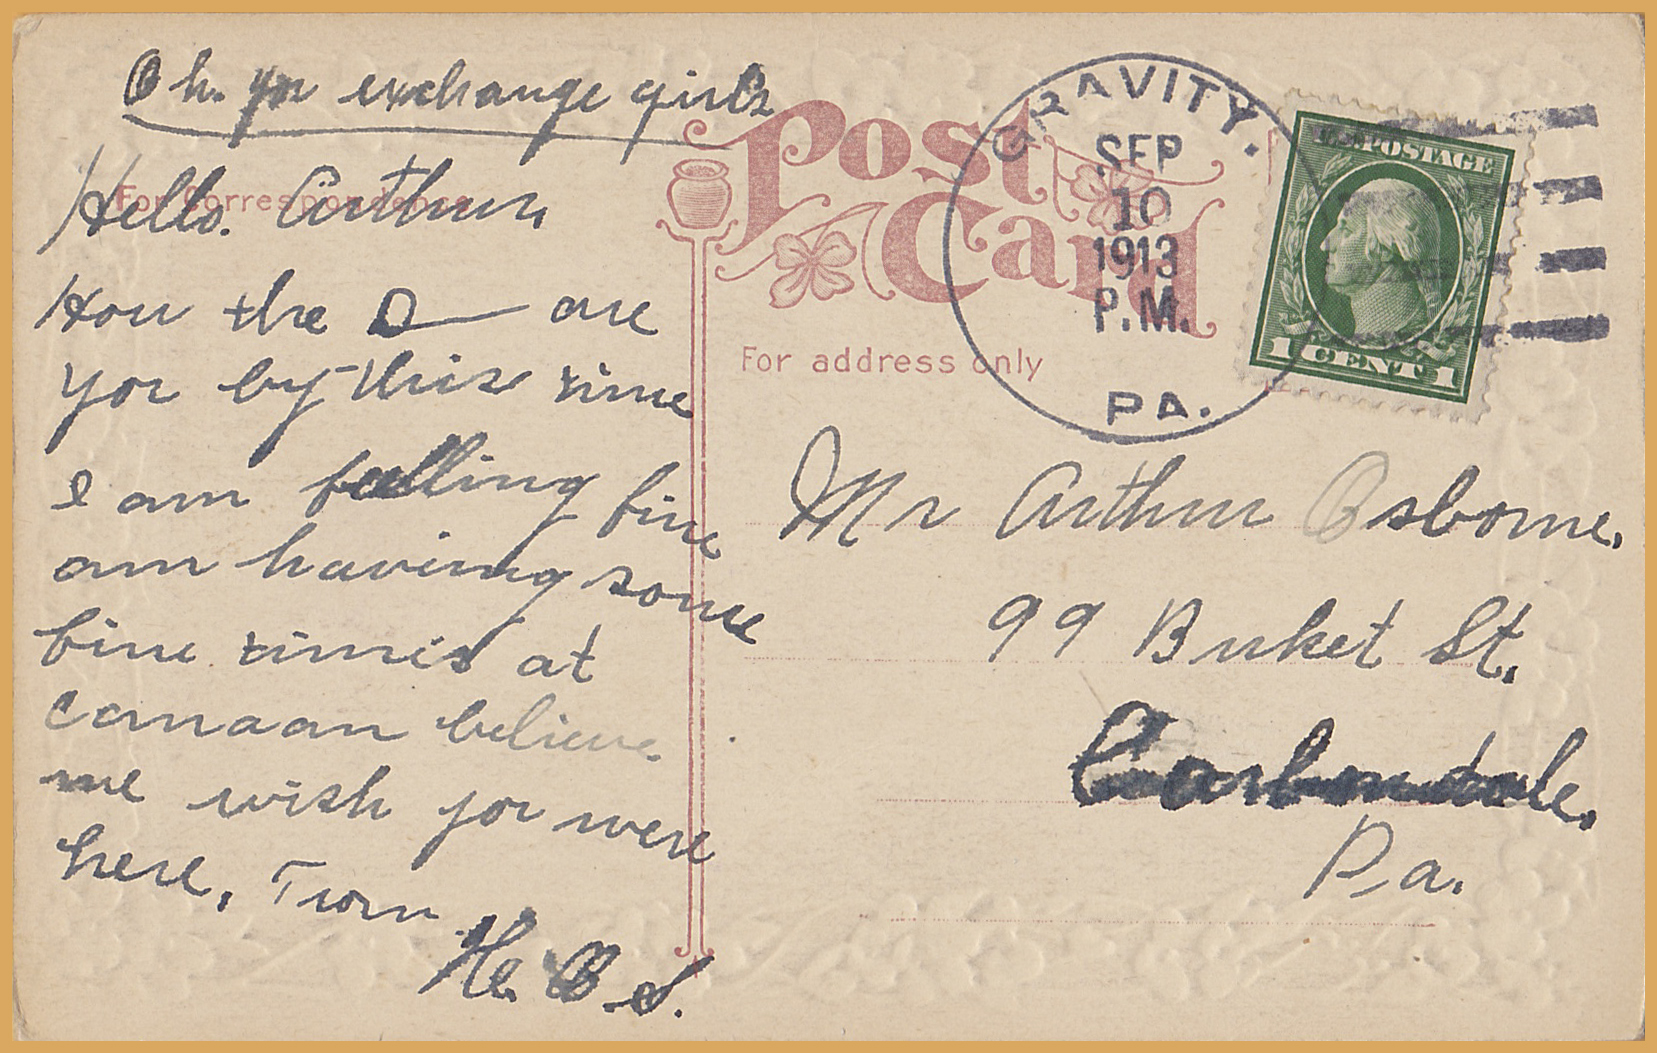 Oh. you exchange girls
Hello. Arthur,
How the D—— are
you by this time
I am falling fine
am having some
fine times at
Canaan believe
me wish you were
here, From
H. B. S.
For Correspondence
Post
Card
For address only
GRAVITY.
SEP
10
1913
P.M.
PA.
U.S. POSTAGE
1 CENT 1
Mr Arthur Osborne,
99 Buket St.
Carbondale,
Pa.